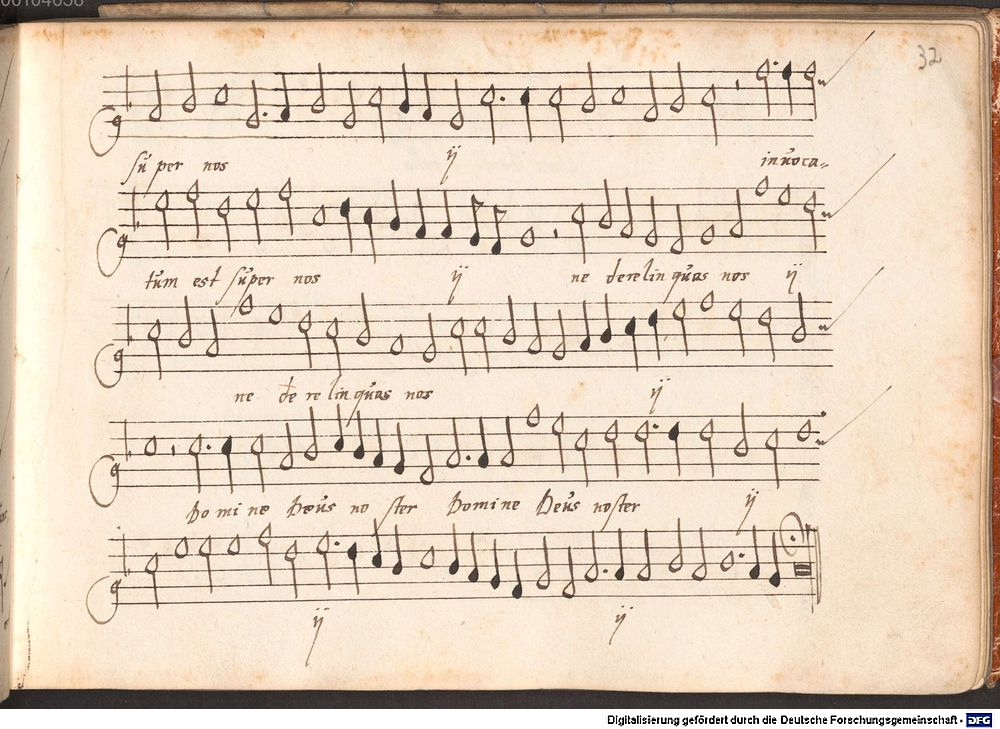 00104638
32
sup̄er nos ij invoca=
tum est super nos ij ne derelinquas nos ij
ne de re linquas nos ij
Domine Deus noster Domine Deus noster ij
ij ij
Digitalisierung gefördert durch die Deutsche Forschungsgemeinschaft - DFG